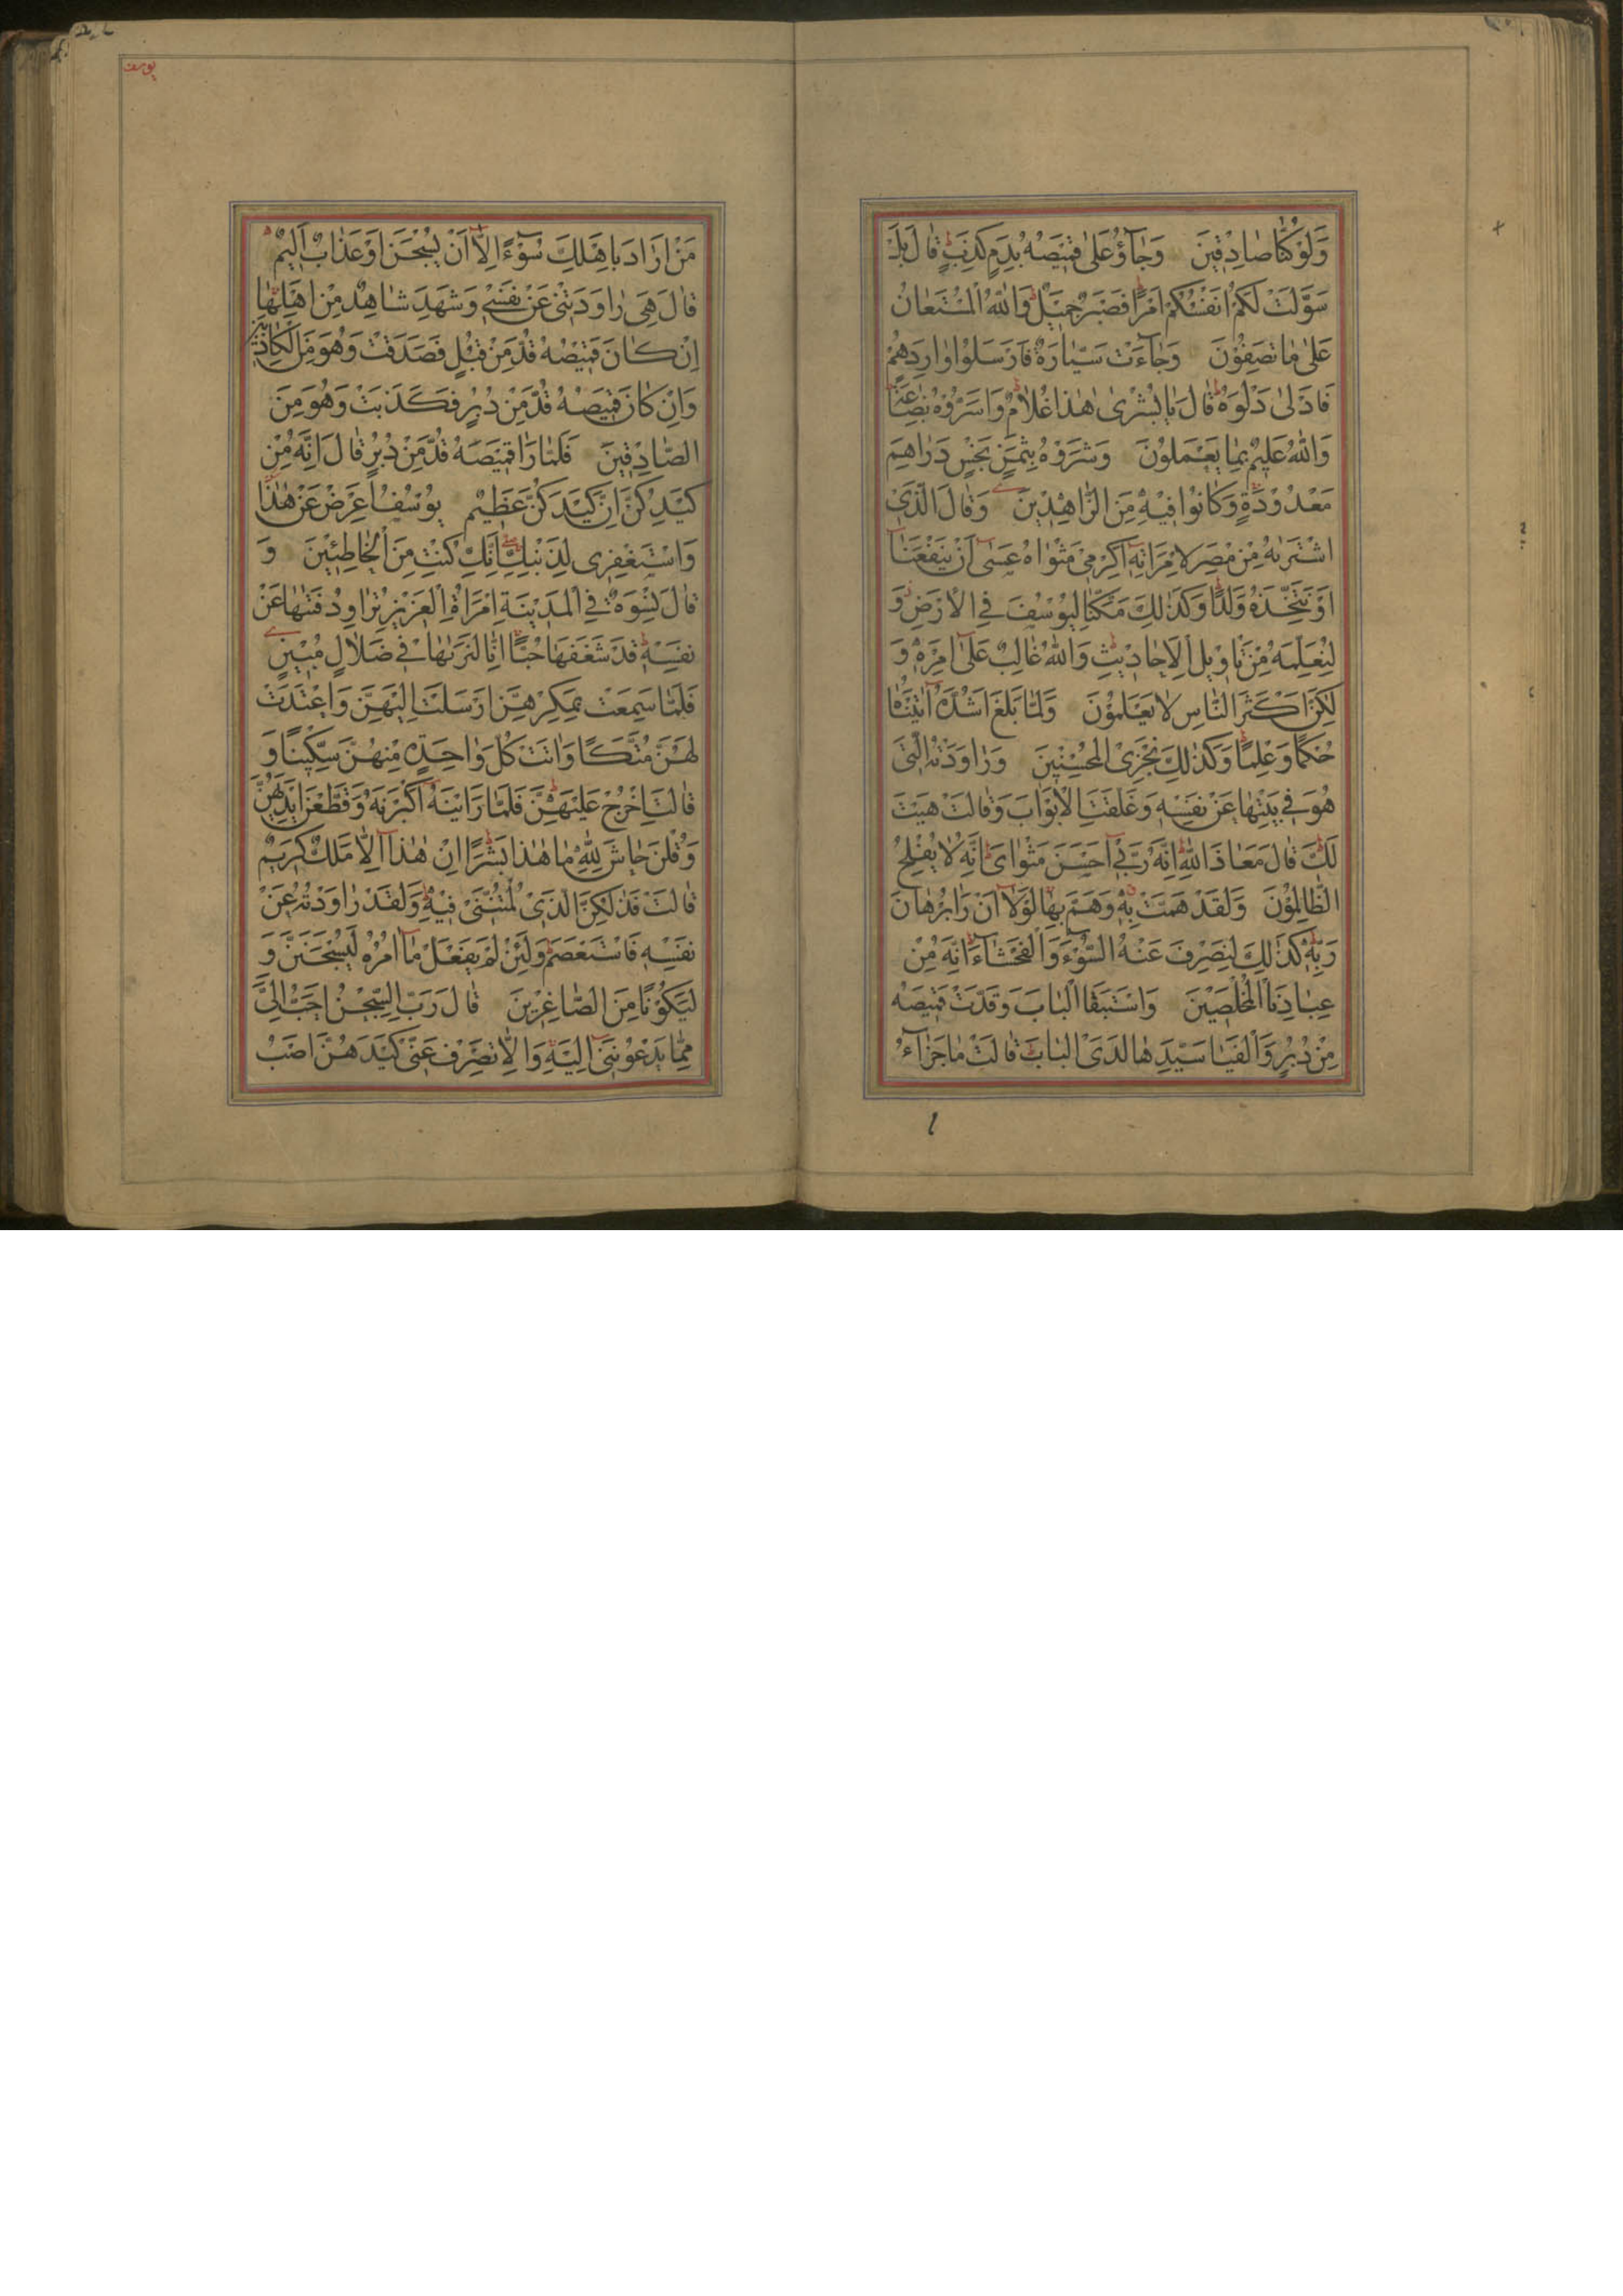 وَلَوْ كُنَّا صَادِقِينَ وَجَآؤُ عَلٰى قَمِيصِهٖ بِدَمٍ كَذِبٍ قَالَ بَلْ
سَوَّلَتْ لَكُمْ اَنْفُسُكُمْ اَمْرًا فَصَبْرٌ جَمِيلٌ وَاللّٰهُ الْمُسْتَعَانُ
عَلٰى مَا تَصِفُونَ وَجَآءَتْ سَيَّارَةٌ فَاَرْسَلُوا وَارِدَهُمْ
فَاَدْلٰى دَلْوَهُ قَالَ يَا بُشْرٰى هٰذَا غُلَامٌ وَاَسَرُّوهُ بِضَاعَةً
وَاللّٰهُ عَلِيمٌ بِمَا يَعْمَلُونَ وَشَرَوْهُ بِثَمَنٍ بَخْسٍ دَرَاهِمَ
مَعْدُودَةٍ وَكَانُوا فِيهِ مِنَ الزَّاهِدِينَ وَقَالَ الَّذِى
اشْتَرٰيهُ مِنْ مِصْرَ لِامْرَاَتِهٖ اَكْرِمِى مَثْوٰاهُ عَسٰى اَنْ يَنْفَعَنَا
اَوْ نَتَّخِذَهُ وَلَدًا وَكَذٰلِكَ مَكَّنَّا لِيُوسُفَ فِى الْاَرْضِ وَ
لِنُعَلِّمَهُ مِنْ تَاْوِيلِ الْاَحَادِيثِ وَاللّٰهُ غَالِبٌ عَلٰى اَمْرِهٖ وَ
لٰكِنَّ اَكْثَرَ النَّاسِ لَا يَعْلَمُونَ وَلَمَّا بَلَغَ اَشُدَّهُ اٰتَيْنَاهُ
حُكْمًا وَعِلْمًا وَكَذٰلِكَ نَجْزِى الْمُحْسِنِينَ وَرَاوَدَتْهُ الَّتِى
هُوَ فِى بَيْتِهَا عَنْ نَفْسِهٖ وَغَلَّقَتِ الْاَبْوَابَ وَقَالَتْ هَيْتَ
لَكَ قَالَ مَعَاذَ اللّٰهِ اِنَّهُ رَبِّى اَحْسَنَ مَثْوَاىَ اِنَّهُ لَا يُفْلِحُ
الظَّالِمُونَ وَلَقَدْ هَمَّتْ بِهٖ وَهَمَّ بِهَا لَوْلَا اَنْ رَاٰ بُرْهَانَ
رَبِّهٖ كَذٰلِكَ لِنَصْرِفَ عَنْهُ السُّوٓءَ وَالْفَحْشَآءَ اِنَّهُ مِنْ
عِبَادِنَا الْمُخْلَصِينَ وَاسْتَبَقَا الْبَابَ وَقَدَّتْ قَمِيصَهُ
مِنْ دُبُرٍ وَاَلْفَيَا سَيِّدَهَا لَدَى الْبَابِ قَالَتْ مَا جَزَآءُ
يوسف
مَنْ اَرَادَ بِاَهْلِكَ سُوٓءًا اِلَّا اَنْ يُسْجَنَ اَوْ عَذَابٌ اَلِيمٌ
قَالَ هِىَ رَاوَدَتْنِى عَنْ نَفْسِى وَشَهِدَ شَاهِدٌ مِنْ اَهْلِهَا
اِنْ كَانَ قَمِيصُهُ قُدَّ مِنْ قُبُلٍ فَصَدَقَتْ وَهُوَ مِنَ الْكَاذِبِينَ
وَاِنْ كَانَ قَمِيصُهُ قُدَّ مِنْ دُبُرٍ فَكَذَبَتْ وَهُوَ مِنَ
الصَّادِقِينَ فَلَمَّا رَاٰ قَمِيصَهُ قُدَّ مِنْ دُبُرٍ قَالَ اِنَّهُ مِنْ
كَيْدِكُنَّ اِنَّ كَيْدَكُنَّ عَظِيمٌ يُوسُفُ اَعْرِضْ عَنْ هٰذَا
وَاسْتَغْفِرِى لِذَنْبِكِ اِنَّكِ كُنْتِ مِنَ الْخَاطِئِينَ وَ
قَالَ نِسْوَةٌ فِى الْمَدِينَةِ امْرَاَةُ الْعَزِيزِ تُرَاوِدُ فَتٰيهَا عَنْ
نَفْسِهٖ قَدْ شَغَفَهَا حُبًّا اِنَّا لَنَرٰيهَا فِى ضَلَالٍ مُبِينٍ
فَلَمَّا سَمِعَتْ بِمَكْرِهِنَّ اَرْسَلَتْ اِلَيْهِنَّ وَاَعْتَدَتْ
لَهُنَّ مُتَّكَاً وَاٰتَتْ كُلَّ وَاحِدَةٍ مِنْهُنَّ سِكِّينًا وَ
قَالَتِ اخْرُجْ عَلَيْهِنَّ فَلَمَّا رَاَيْنَهُ اَكْبَرْنَهُ وَقَطَّعْنَ اَيْدِيَهُنَّ
وَقُلْنَ حَاشَ لِلّٰهِ مَا هٰذَا بَشَرًا اِنْ هٰذَا اِلَّا مَلَكٌ كَرِيمٌ
قَالَتْ فَذٰلِكُنَّ الَّذِى لُمْتُنَّنِى فِيهِ وَلَقَدْ رَاوَدْتُهُ عَنْ
نَفْسِهٖ فَاسْتَعْصَمَ وَلَئِنْ لَمْ يَفْعَلْ مَا اٰمُرُهُ لَيُسْجَنَنَّ وَ
لَيَكُونًا مِنَ الصَّاغِرِينَ قَالَ رَبِّ السِّجْنُ اَحَبُّ اِلَىَّ
مِمَّا يَدْعُونَنِى اِلَيْهِ وَاِلَّا تَصْرِفْ عَنِّى كَيْدَهُنَّ اَصْبُ